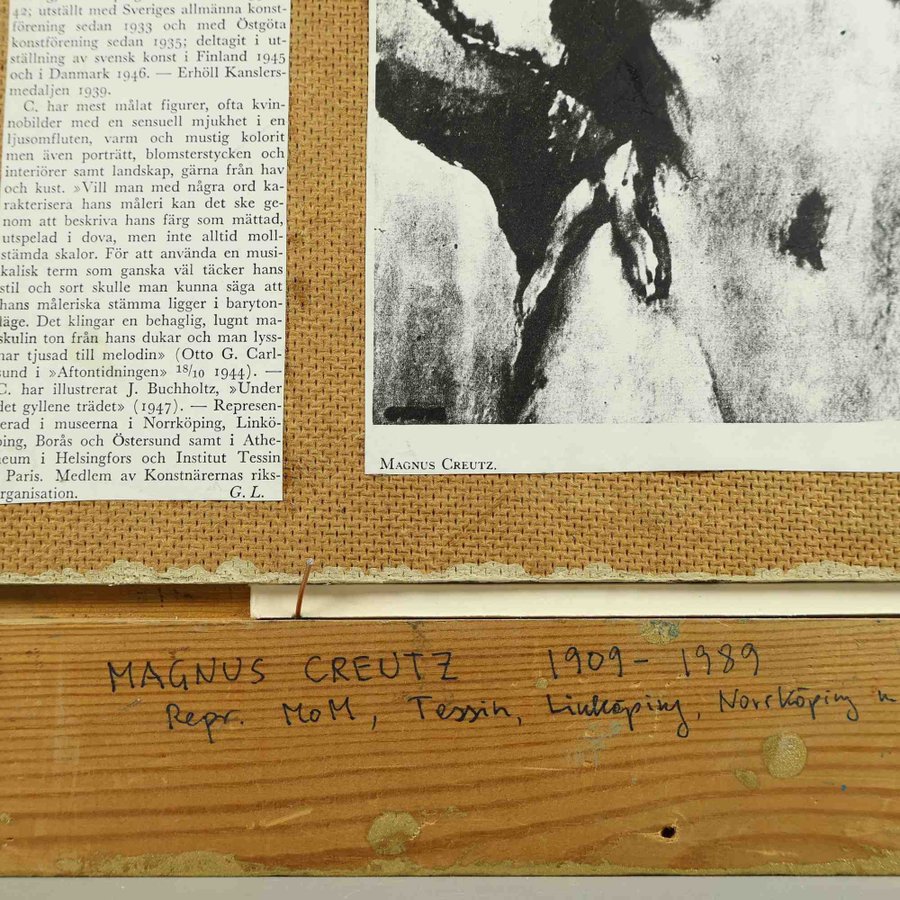 42; utställt med Sveriges allmänna konst-
förening sedan 1933 och med Östgöta
konstförening sedan 1935; deltagit i ut-
ställning av svensk konst i Finland 1945
och i Danmark 1946. — Erhöll Kanslers-
medaljen 1939.
C. har mest målat figurer, ofta kvin-
nobilder med en sensuell mjukhet i en
ljusomfluten, varm och mustig kolorit
men även porträtt, blomsterstycken och
interiörer samt landskap, gärna från hav
och kust. »Vill man med några ord ka-
rakterisera hans måleri kan det ske ge-
nom att beskriva hans färg som mättad,
utspelad i dova, men inte alltid moll-
stämda skalor. För att använda en musi-
kalisk term som ganska väl täcker hans
stil och sort skulle man kunna säga att
hans måleriska stämma ligger i baryton-
läge. Det klingar en behaglig, lugnt ma-
skulin ton från hans dukar och man lyss-
nar tjusad till melodin» (Otto G. Carl-
sund i »Aftontidningen» 18/10 1944). —
C. har illustrerat J. Buchholtz, »Under
det gyllene trädet» (1947). — Represen-
erad i museerna i Norrköping, Linkö-
ping, Borås och Östersund samt i Athe-
neum i Helsingfors och Institut Tessin
Paris. Medlem av Konstnärernas riks-
rganisation. G. L.
MAGNUS CREUTZ.
MAGNUS CREUTZ 1909-1989
Repr. MoM, Tessin, Linköping, Norrköping